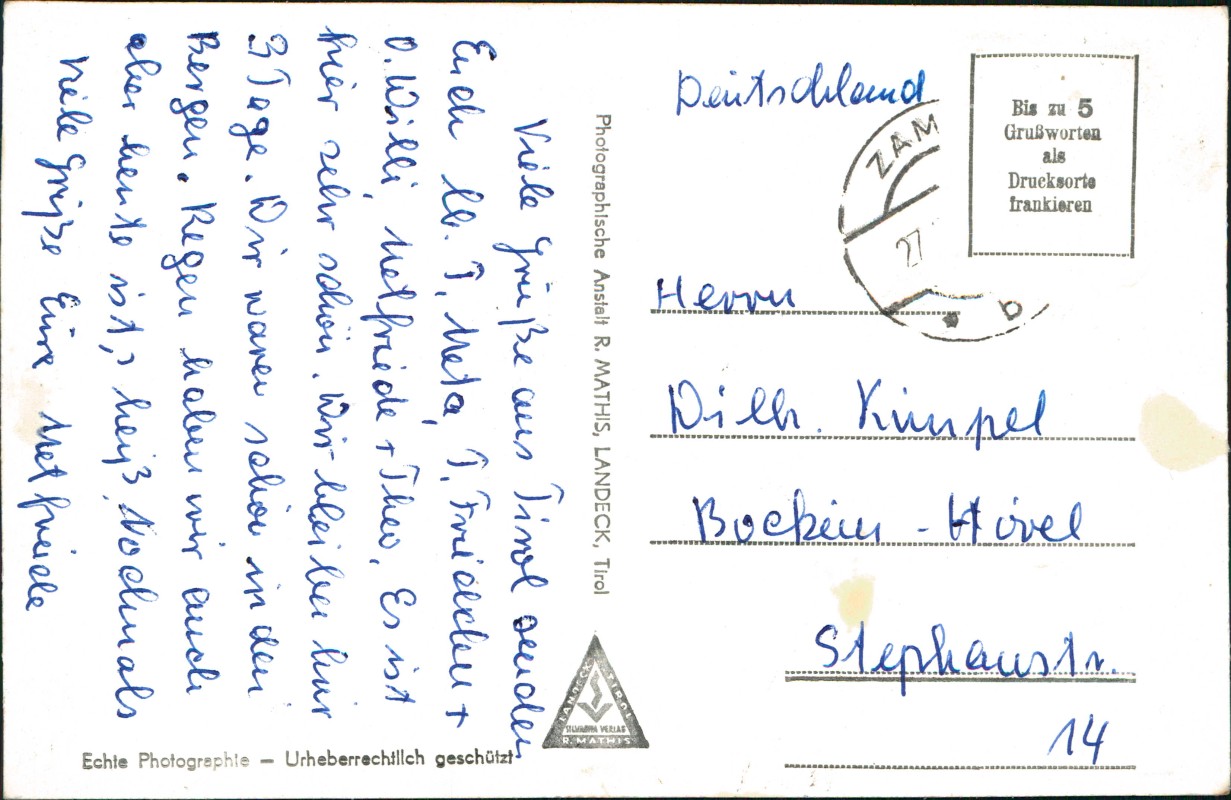 Viele Grüße aus Tirol senden
Euch lb. T. Meta, T. Friedchen +
O. Willi, Metfriede + Theo. Es ist
hier sehr schön. Wir bleiben nur
3 Tage. Wir waren schon in den
Bergen. Regen haben wir auch
aber heute ist,s heiß. Nochmals
viele Grüße Eure Metfriede
Echte Photographie – Urheberrechtlich geschützt
Photographische Anstalt R. MATHIS, LANDECK, Tirol
LANDECK TIROL
SILVRETTA VERLAG
R. MATHIS
Deutschland
ZAM
27.
b
Bis zu 5
Grußworten
als
Drucksorte
frankieren
Herrn
Wilh. Kimpel
Bockum-Hövel
Stephanstr.
14